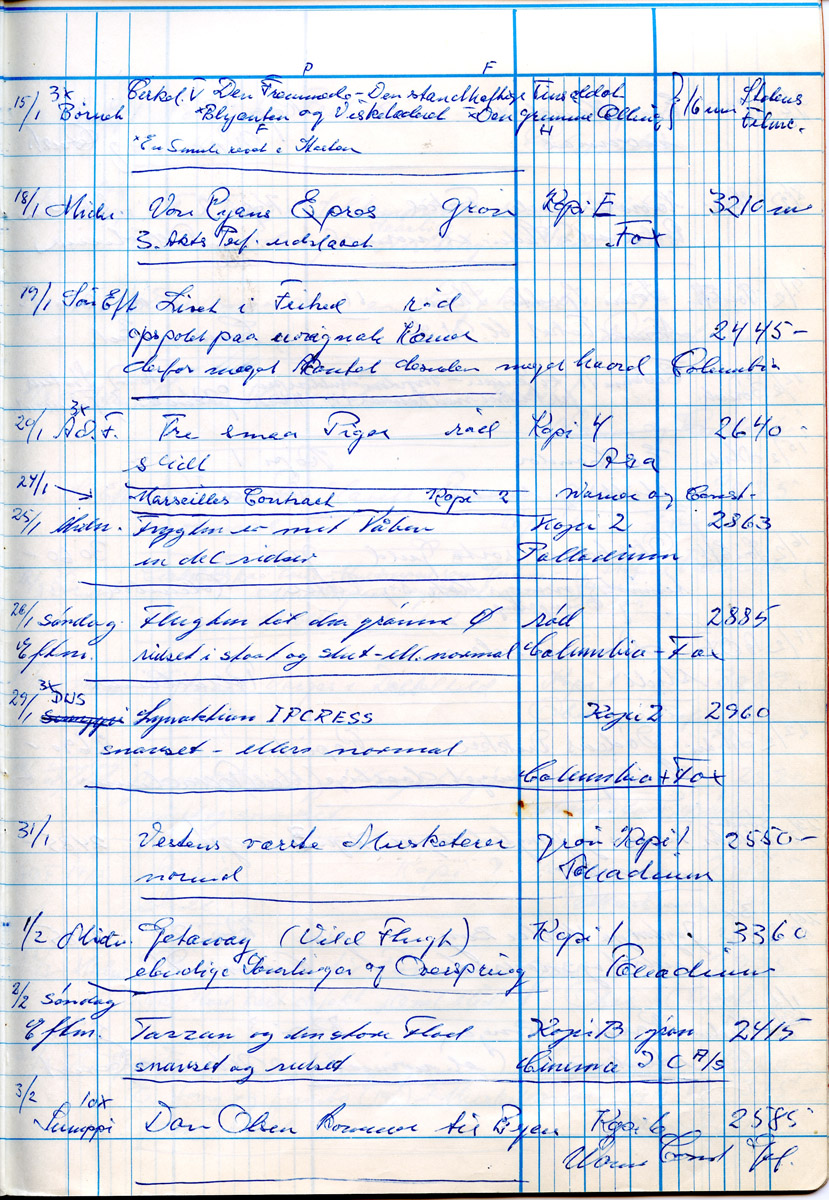 P F
15/1 3x Børneh Cirkel. V Den Fremmede - Den standhaftige Tinsoldat
*Blyanten og Viskelæderet *Den grimme Ælling } 16 mm Statens Filmc.
F H
*En Smule rødt i
18/1 Midn. Von Ryans Expres grøn Kopi E 3210 m
3. Akts Perf. udslaaet Fox
19/1 Søn Eft Livet i Frihed rød
opspolet paa Kerner 2445-
derfor meget desuden meget haard Columbia
20/1 3x Ad. F. Tre smaa Piger rød Kopi 4 2640
slidt Asa
24/1 Marseilles Contract Kopi 2 Warner og Const.
25/1 Midn. Frygten er mit Vaaben Kopi 2 2863
en del ridser Palladium
26/1 Søndag Flugten til den grønne Ø rød 2885
Eftm. ridset i start og slut - ell. normal Columbia - Fox
29/1 3x DNS Lynaktion IPCRESS Kopi 2 2960
snavset - ellers normal
Columbia + Fox
31/1 Vestens værste Musketerer grøn Kopi 1 2550-
normal Palladium
1/2 Midn. Getaway (Vild Flugt) Kopi 1 3360
elendige Samlinger og Overspring Palladium
2/2 Søndag
Eftm. Tarzan og den store Flod Kopi B grøn 2415
snavset og ridset Cinema I C A/S
3/2 10x Sumppi Dan Olsen kommer til Byen Kopi 6 2585
Warner Const